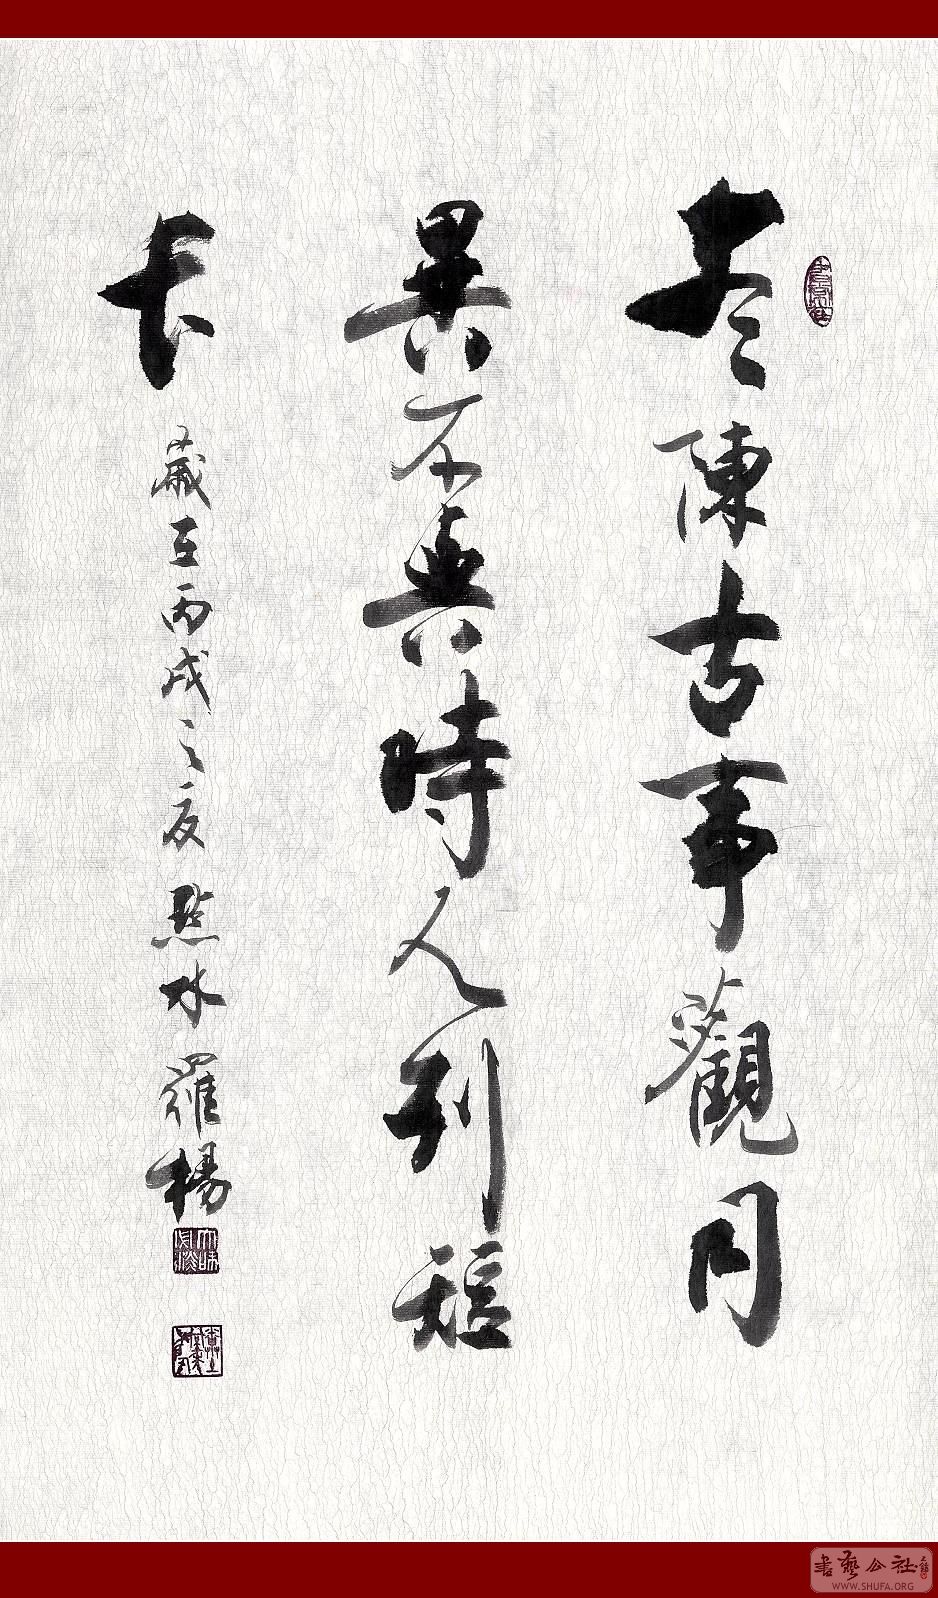 尽陳古事觀同
異不與時人刋短
長
歲在丙戌之夏點水羅楊
書藝公社
WWW.SHUFA.ORG